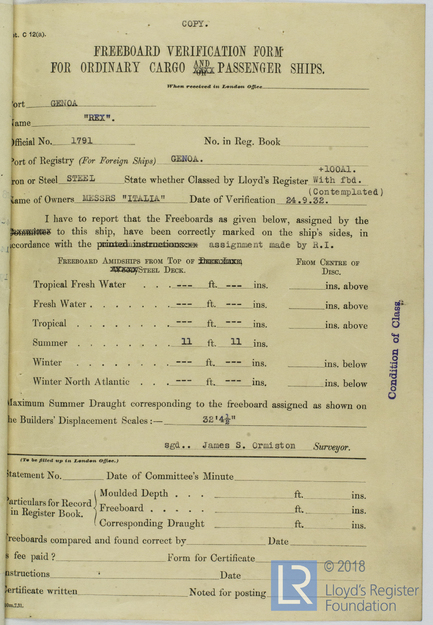 COPY.
t. C 12(a).
FREEBOARD VERIFICATION FORM
FOR ORDINARY CARGO AND PASSENGER SHIPS.
When received in London Office
ort GENOA
ame "REX".
fficial No. 1791 No. in Reg. Book
ort of Registry (For Foreign Ships) GENOA.
+100A1.
ron or Steel STEEL State whether Classed by Lloyd's Register With fbd.
(Contemplated)
ame of Owners MESSRS "ITALIA" Date of Verification 24.9.32.
I have to report that the Freeboards as given below, assigned by the
Committee to this ship, have been correctly marked on the ship's sides, in
ccordance with the printed instructions assignment made by R.I.
FREEBOARD AMIDSHIPS FROM TOP OF STEEL DECK.
FROM CENTRE OF DISC.
Tropical Fresh Water . . . --- ft. --- ins. ins. above
Fresh Water . . . . . . --- ft. --- ins. ins. above
Tropical . . . . . . --- ft. --- ins. ins. above
Summer . . . . . . 11 ft. 11 ins.
Winter . . . . . . --- ft. --- ins. ins. below
Winter North Atlantic . . --- ft. --- ins. ins. below
Condition of Class
aximum Summer Draught corresponding to the freeboard assigned as shown on
he Builders' Displacement Scales:— 32'4½"
sgd.. James S. Ormiston Surveyor.
(To be filled up in London Office.)
tatement No. Date of Committee's Minute
articulars for Record in Register Book.
Moulded Depth . . . ft. ins.
Freeboard . . . . ft. ins.
Corresponding Draught ft. ins.
reeboards compared and found correct by Date
s fee paid? Form for Certificate
nstructions Date
ertificate written Noted for posting
LR
© 2018
Lloyd's Register
Foundation